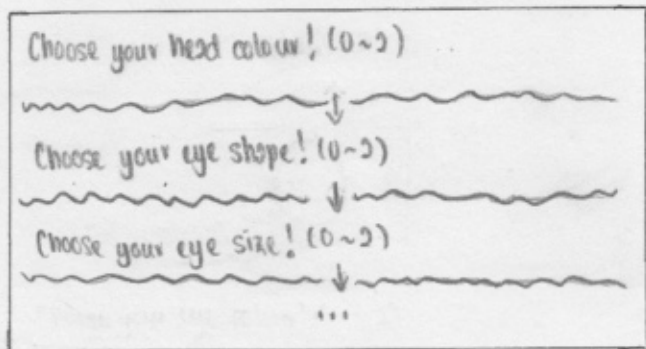 Choose your head colour! (0~2)
Choose your eye shape! (0~2)
Choose your eye size! (0~2)
...